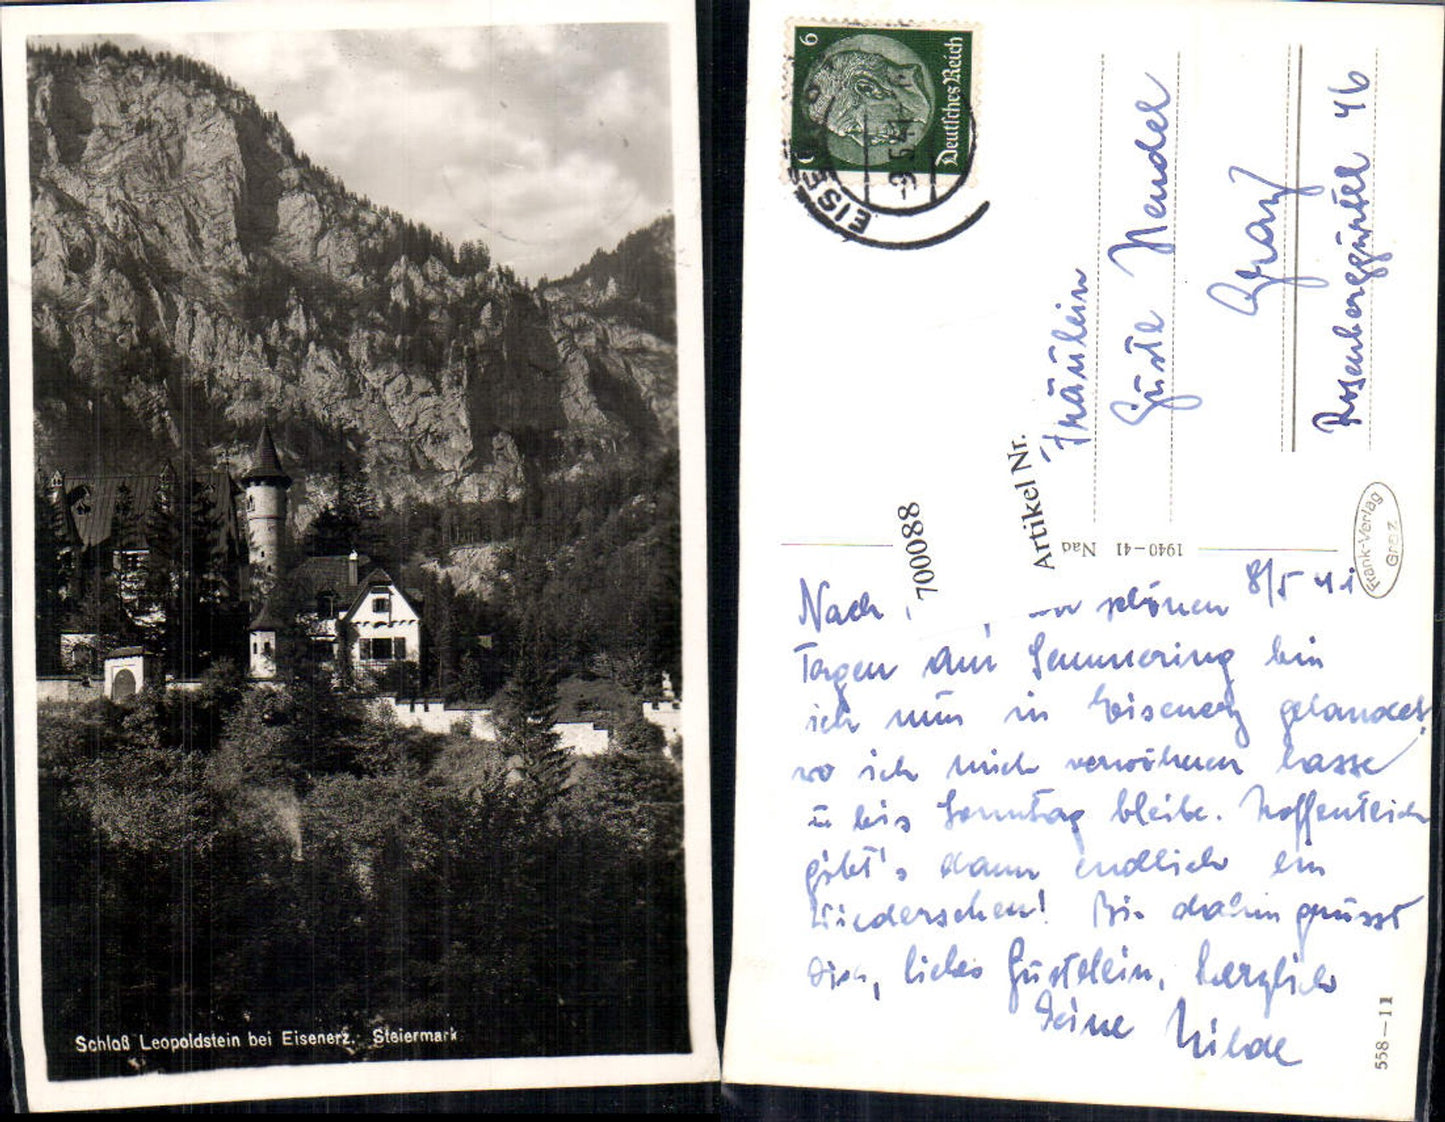 Schloß Leopoldstein bei Eisenerz. Steiermark
6
Deutsches Reich
EISE
9.5.41
Fräulein
Guste Hendel
Graz
Rosenberggürtel 46
Artikel Nr.
700088
Nad
1940-41
Frank-Verlag
Graz
8/5 41
Nach schönen
Tagen am Semmering bin
ich nun in Eisenerz gelandet,
wo ich mich verwöhnen lasse
u bis Sonntag bleibe. Hoffentlich
gibt's dann endlich ein
Wiedersehen! Bis dahin grüsst
Dich, liebes Gustelein, herzlich
Deine Hilde
558-11